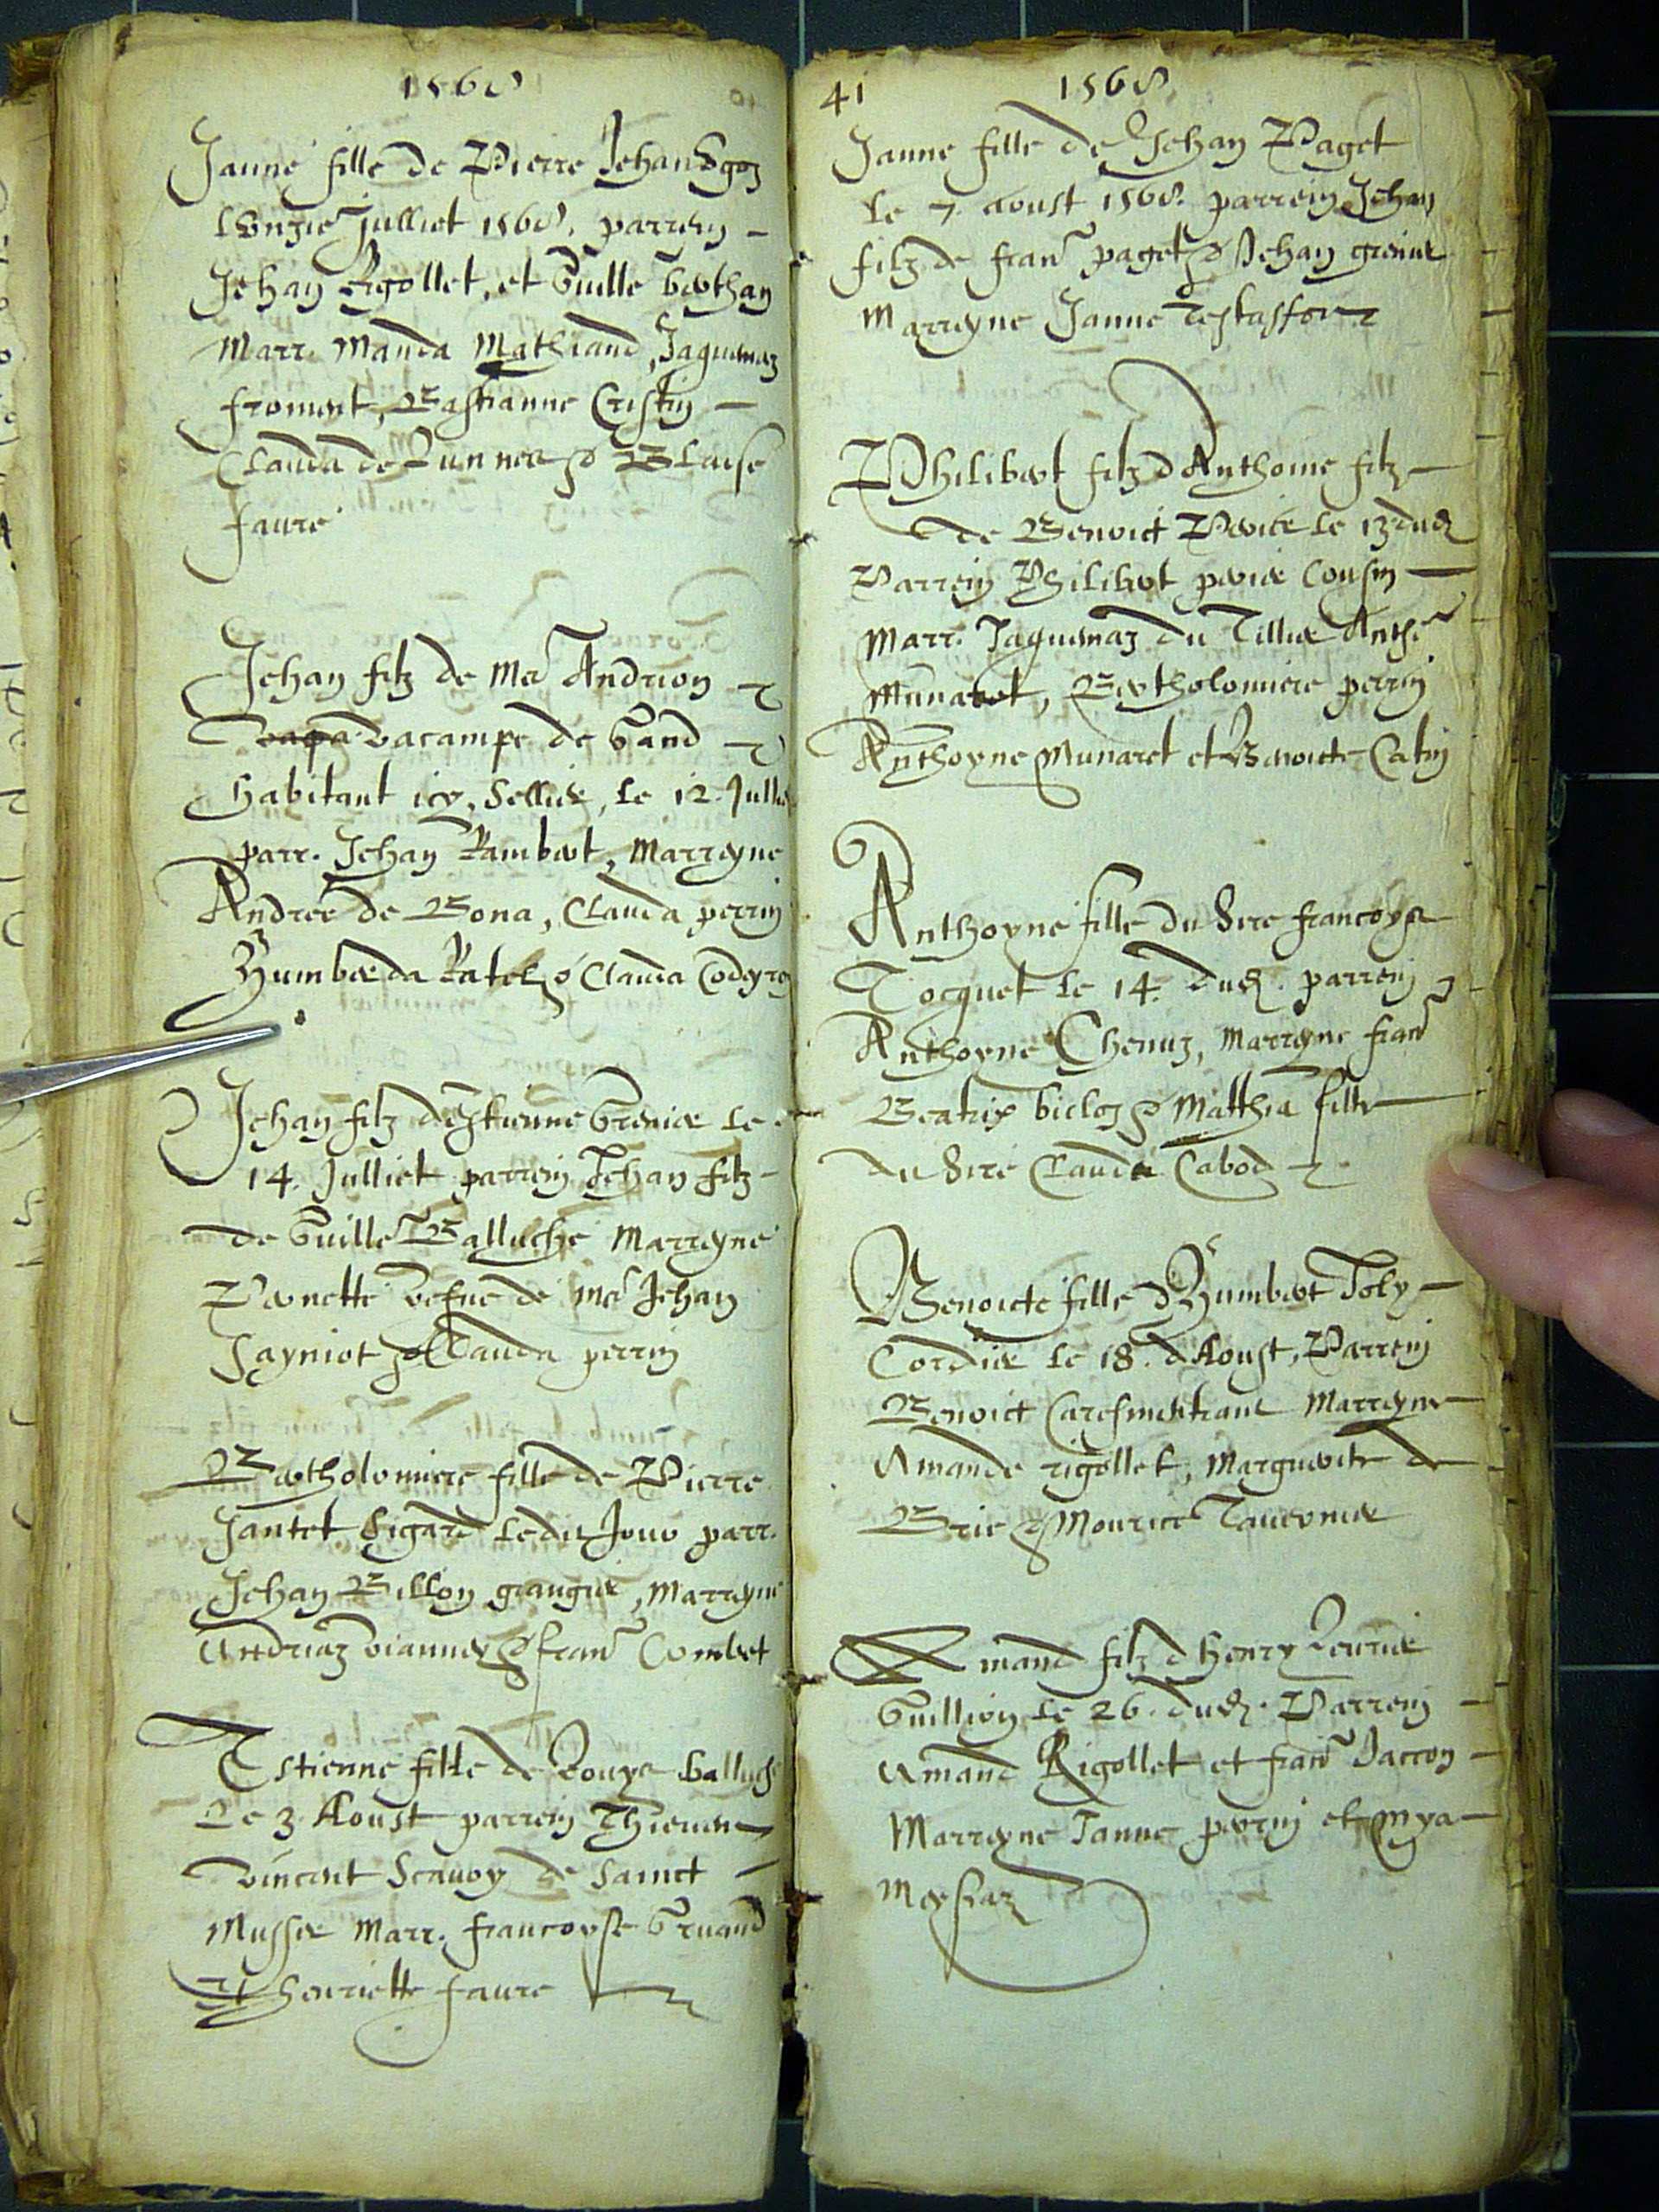 1568
Janne fille de Pierre Jehan Egoz
Lonzie Julliet 1568. parrein
Jehan Rigollet, et Guille berthan
Marr. Manda Mathiand, Jaquemaz
froment, Bastianne Cristin
Clauda de Lunner & Blaise
faure
Jehan filz de Me Andrion
vacampe de Gand
habitant icy, Sellier, le 12. Jullie
parr. Jehan Rambert, Marreyne
Andree de Bona, Clauda perrin
Humberda Ratel & Clauda
Jehan filz destienne Grenier le
14. Julliet parrein Jehan filz
de Guille Balluche Marreyne
Pernette vefue de me Jehan
Sayniot & Clauda perrin
Bartholomiere fille de Pierre
Jantet Sigard Ledit Jour parr.
Jehan Billon grangier, Marreyne
Andriaz vianney & fran Combet
Estienne fille de Louys balluche
Le 3. Aoust parrein
vincent Scauoy de Sainct
Mussie Marr. francoyse Gruand
Et henriette faure
41 1568
Janne fille de Jehan Paget
Le 7. aoust 1568. parrein Jehan
filz de fran paget & Jehan grenier
Marreyne Janne Testasfort
Philibert filz dAnthoine filz
de Benoict Perrier le 13 dud
Parrein Philibert perrier Cousin
Marr. Jaquemaz du Tillier Anth
Munaret, Bertholomiere perrin
Anthoyne Munaret et Benoicte Catin
Anthoyne fille du Sire francoys
Tocquet le 14. dud. parrein
Anthoyne Chenuz, Marreyne fran
Beatrix bicloz & Matthia fille
du Sire Claude Cabod
Benoicte fille dHumbert Joly
Cordier le 18. dAoust, Parrein
Benoict Caresmentrant Marreyne
Amande rigollet, Marguerite de
Brie & Mourice Tauernier
Amand filz d henry
Guillion le 26. dud. Parrein
Amand Rigollet et fran Jaccon
Marreyne Janne perrin et mya